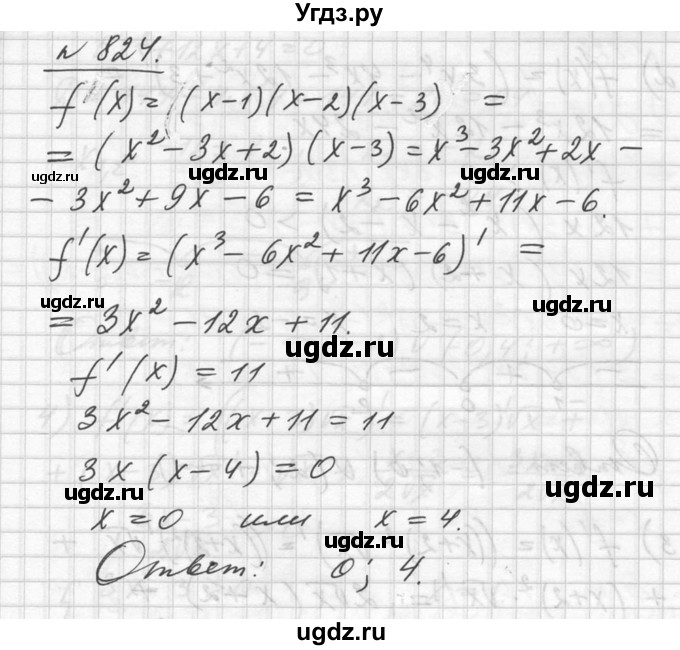 Угдз.ру
N 824.
f'(x) = ((x-1)(x-2)(x-3) =
= (x² - 3x + 2)(x - 3) = x³ - 3x² + 2x -
ugdz.ru ugdz.ru ugdz.ru
- 3x² + 9x - 6 = x³ - 6x² + 11x - 6.
f'(x) = (x³ - 6x² + 11x - 6)' =
ugdz.ru ugdz.ru
= 3x² - 12x + 11.
ugdz.ru
f'(x) = 11
3x² - 12x + 11 = 11
3x(x - 4) = 0
ugdz.ru ugdz.ru
x = 0 или x = 4.
ugdz.ru ugdz.ru
Ответ: 0; 4.
ugdz.ru